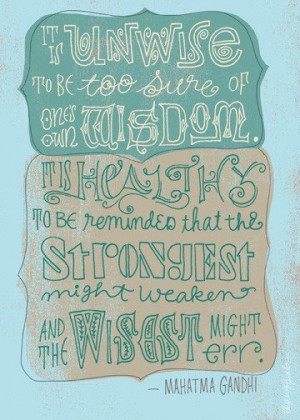 IT IS UNWISE
TO BE too sure OF
ONE'S OWN WISDOM.
IT IS HEALTHY
TO BE reminded that the
STRONGEST
might weaken
AND THE WISEST MIGHT err.
— MAHATMA GANDHI